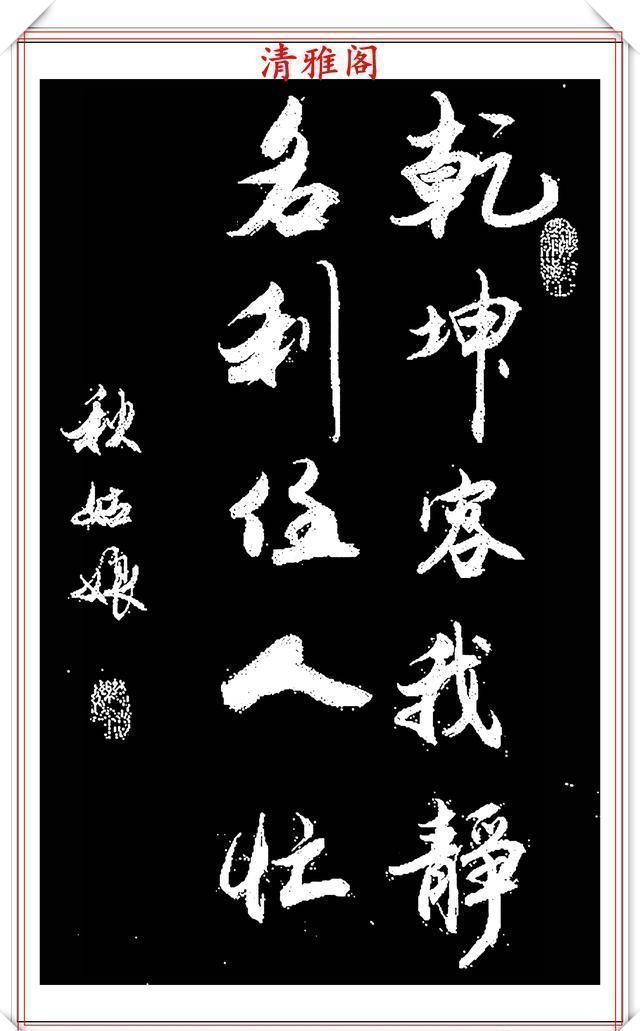 清雅阁
乾坤容我靜
名利任人忙
秋姑娘